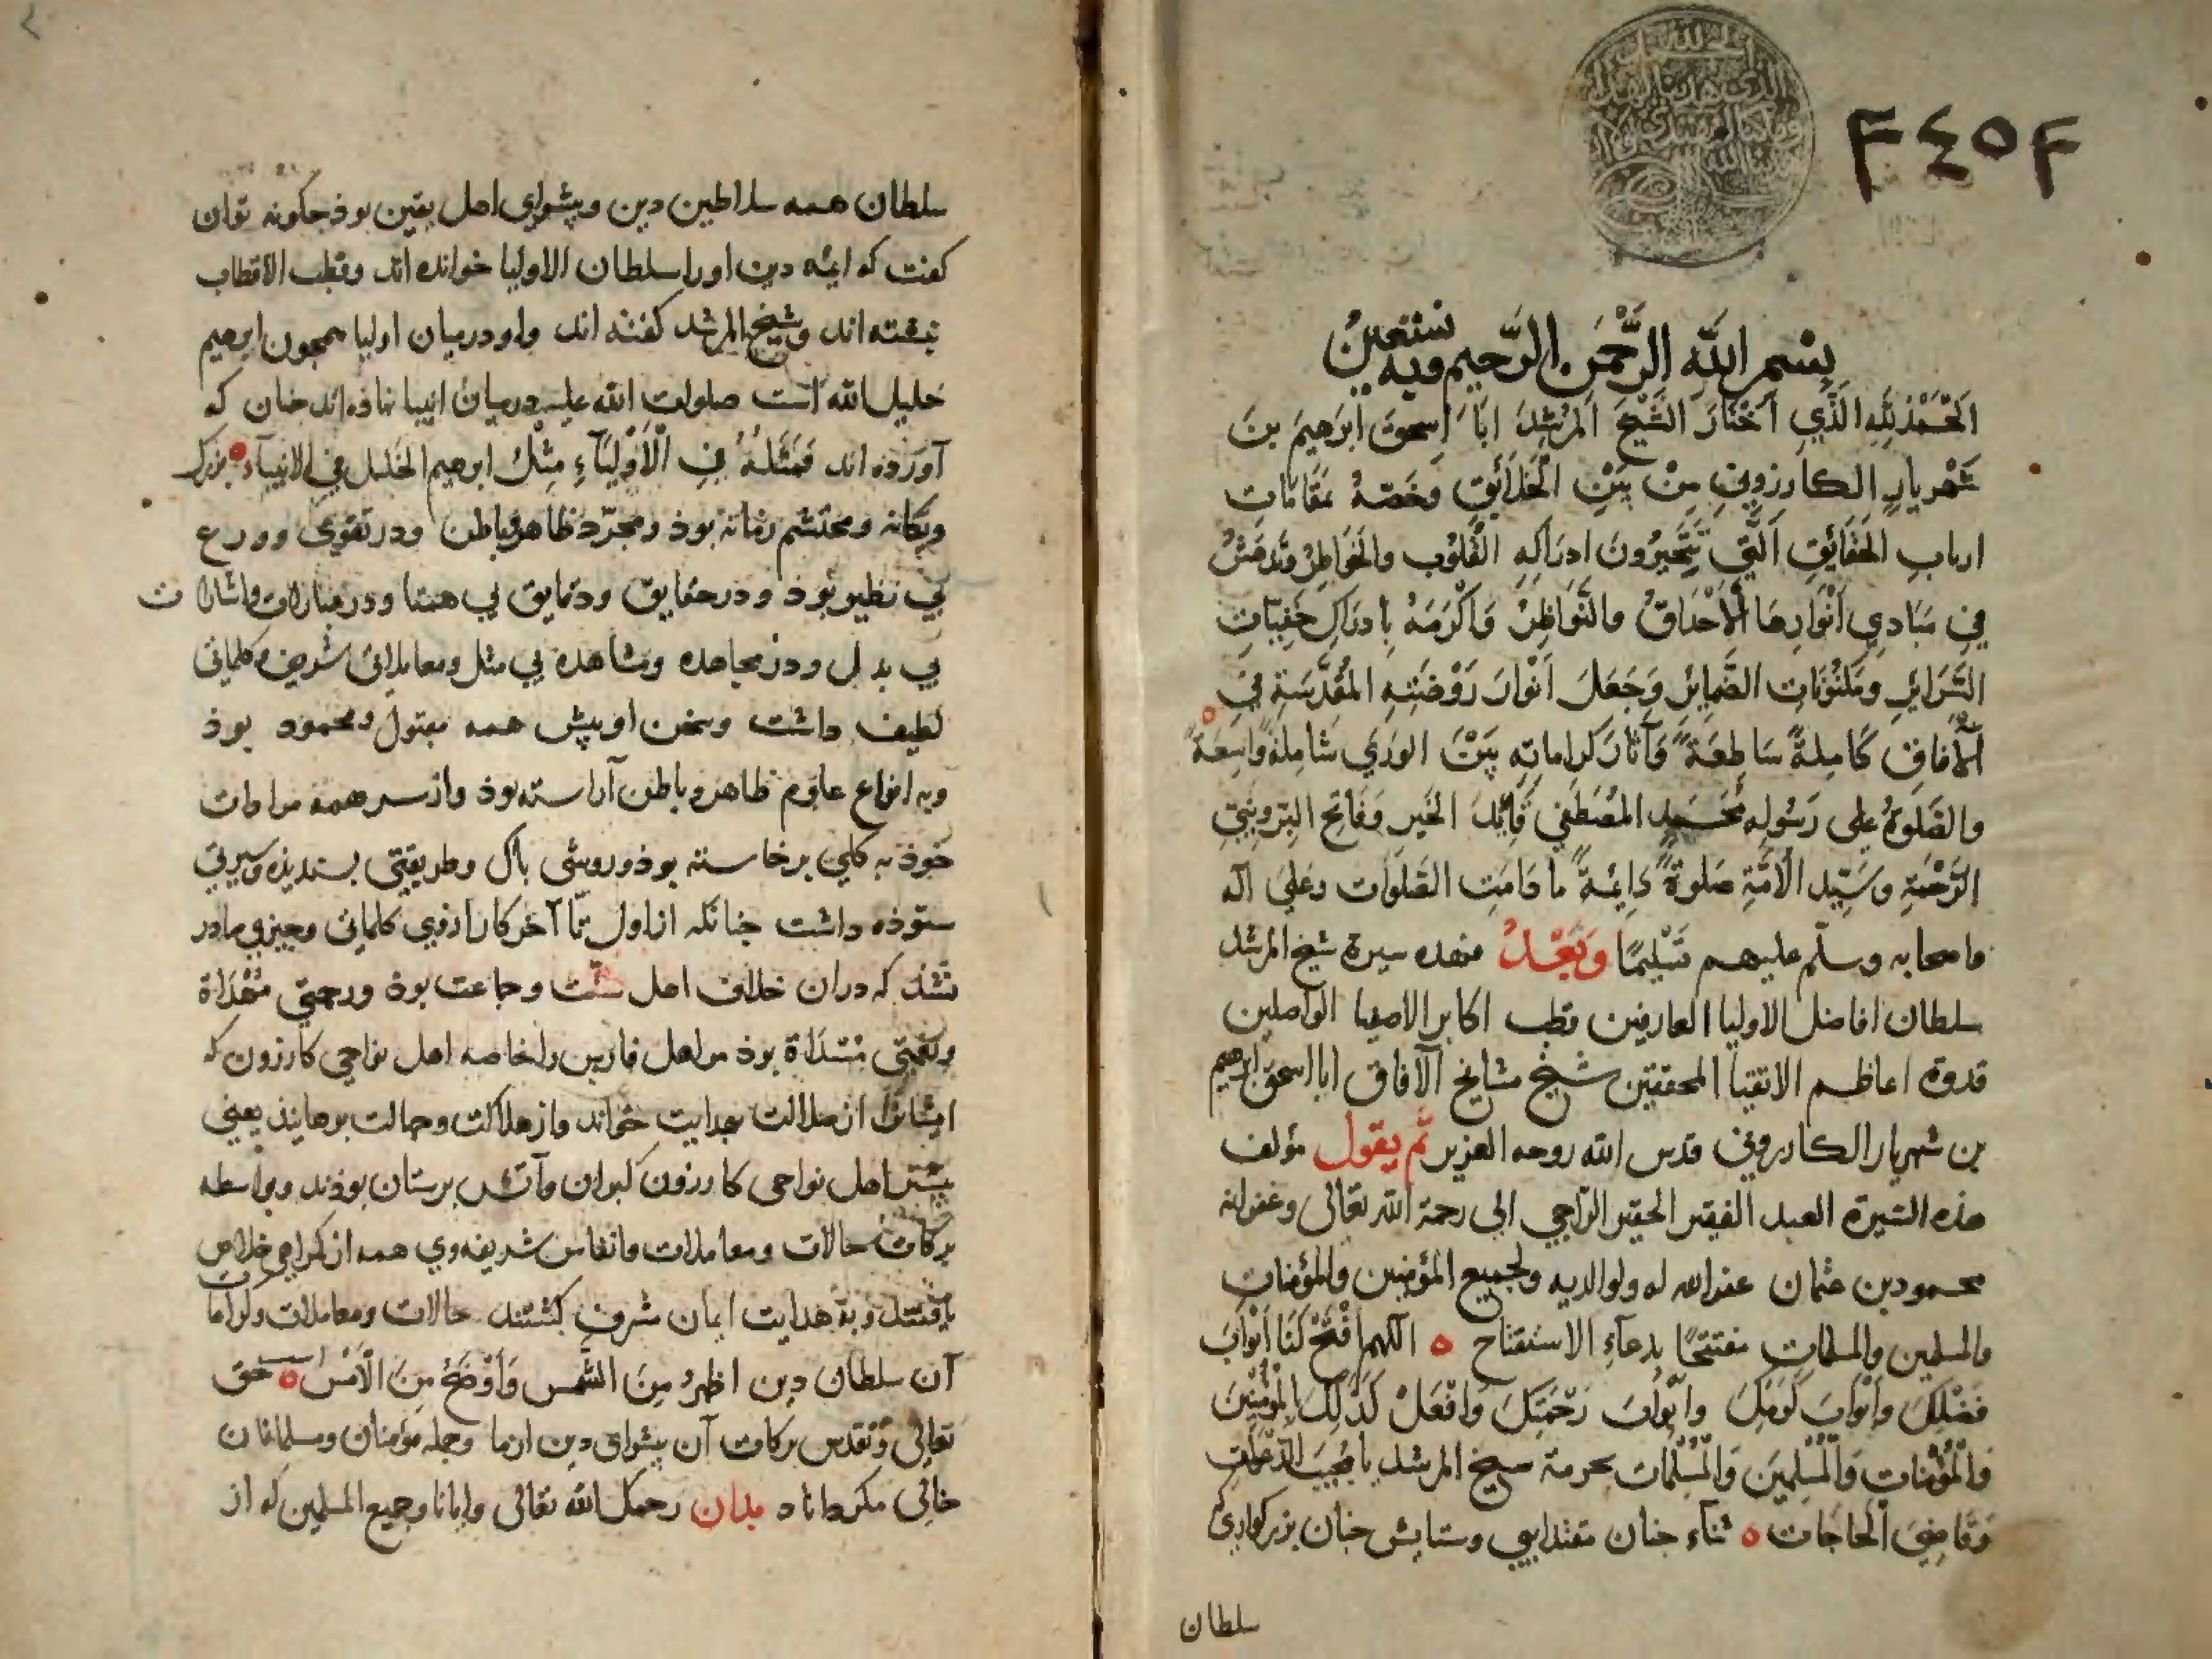 ٢٤٥٤
بسم الله الرحمن الرحيم وبه نستعين
الحمد لله الذي اختار الشيخ المرشد ابا اسحق ابرهيم بن
شهريار الكازروني من بين الخلائق وخصه بمقامات
ارباب الحقائق التي تتحيرون ادراكه القلوب والخواطر وتدهش
في مبادي انوارها الاحداق والنواظر واكرمه بادراك خفيات
السرائر ومكنونات الضمائر وجعل انوار روضته المقدسة في
الآفاق كاملة ساطعة وآثار كراماته بين الورى شاملة واسعة
والصلوة على رسوله محمد المصطفى قائد الخير وفاتح البر ونبي
الرحمة وسيد الامة صلوة دائمة ما دامت الصلوات وعلى آله
واصحابه وسلم عليهم تسليما وبعد فهذه سيرة شيخ المرشد
سلطان افاضل الاوليا العارفين قطب اكابر الاصفيا الواصلين
قدوة اعاظم الاتقيا المحققين شيخ مشايخ الآفاق ابا اسحق ابرهيم
بن شهريار الكازروني قدس الله روحه العزيز ثم يقول مؤلف
هذه السيرة العبد الفقير الحقير الراجي الى رحمة الله تعالى وغفرانه
محمود بن عثمان غفر الله له ولوالديه ولجميع المؤمنين والمؤمنات
والمسلمين والمسلمات مفتتحا بدعآء الاستفتاح ه اللهم افتح لنا ابواب
فضلك وابواب كرمك وابواب رحمتك وافعل كذلك بالمؤمنين
والمؤمنات والمسلمين والمسلمات بحرمة شيخ المرشد يا مجيب الدعوات
وقاضي الحاجات ه ثناء جنان مقتدايي وستايش جنان بزركواري
سلطان
سلطان همه سلاطين دين وپيشواي اهل يقين بوذ جكونه توان
كفت كه ايمه دين اورا سلطان الاوليا خوانده اند وقطب الاقطاب
نبشته اند وشيخ المرشد كفته اند واو درميان اوليا همجون ابرهيم
خليل الله است صلوات الله عليه درميان انبيا نهاذه اند جنان كه
آورده اند فمثله في الاولياء مثل ابرهيم الخليل في الانبيآء ه بزرك
ويكانه ومحتشم زمانه بوذ ومجرد ظاهر وباطن ودر تقوى وورع
بي نظير بوذ ودر حقايق ودقايق بي همتا ودر عبارات واشارات
بي بدل ودر مجاهده ومشاهده بي مثل ومعاملاتى شريف وكلماتى
لطيف داشت وسخن او پيش همه مقبول ومحمود بوذ
وبه انواع علوم ظاهر وباطن آراسته بوذ واز سر همه مرادات
خوذ به كلي برخاسته بوذ وروشى پاك وطريقتى پسنديذه وسيرتى
ستوذه داشت جنانكه از اول تا آخر كار ازوي كلماتى وچيزي صادر
نشذ كه دران خلاف اهل سنت وجماعت بوذ ورحمتي مهداة
ونعمتي مسداة بوذ مر اهل فارس را خاصه اهل نواحي كازرون كه
ايشانرا از ضلالت بهدايت خواند واز هلاكت وجهالت برهانيذ يعني
بيشتر اهل نواحى كازرون كبران وآتش پرستان بوذند وبواسطه
بركات حالات ومعاملات وانفاس شريفه وي همه از كمراهي خلاص
يافتند وبه هدايت ايمان مشرف كشتند حالات ومعاملات وكرامات
آن سلطان دين اظهر من الشمس واوضح من الامس ه حق
تعالى وتقدس بركات آن پيشواى دين ازما وجمله مؤمنان ومسلمانان
خالى مكرداناد بدان رحمك الله تعالى وايانا وجميع المسلمين كه از